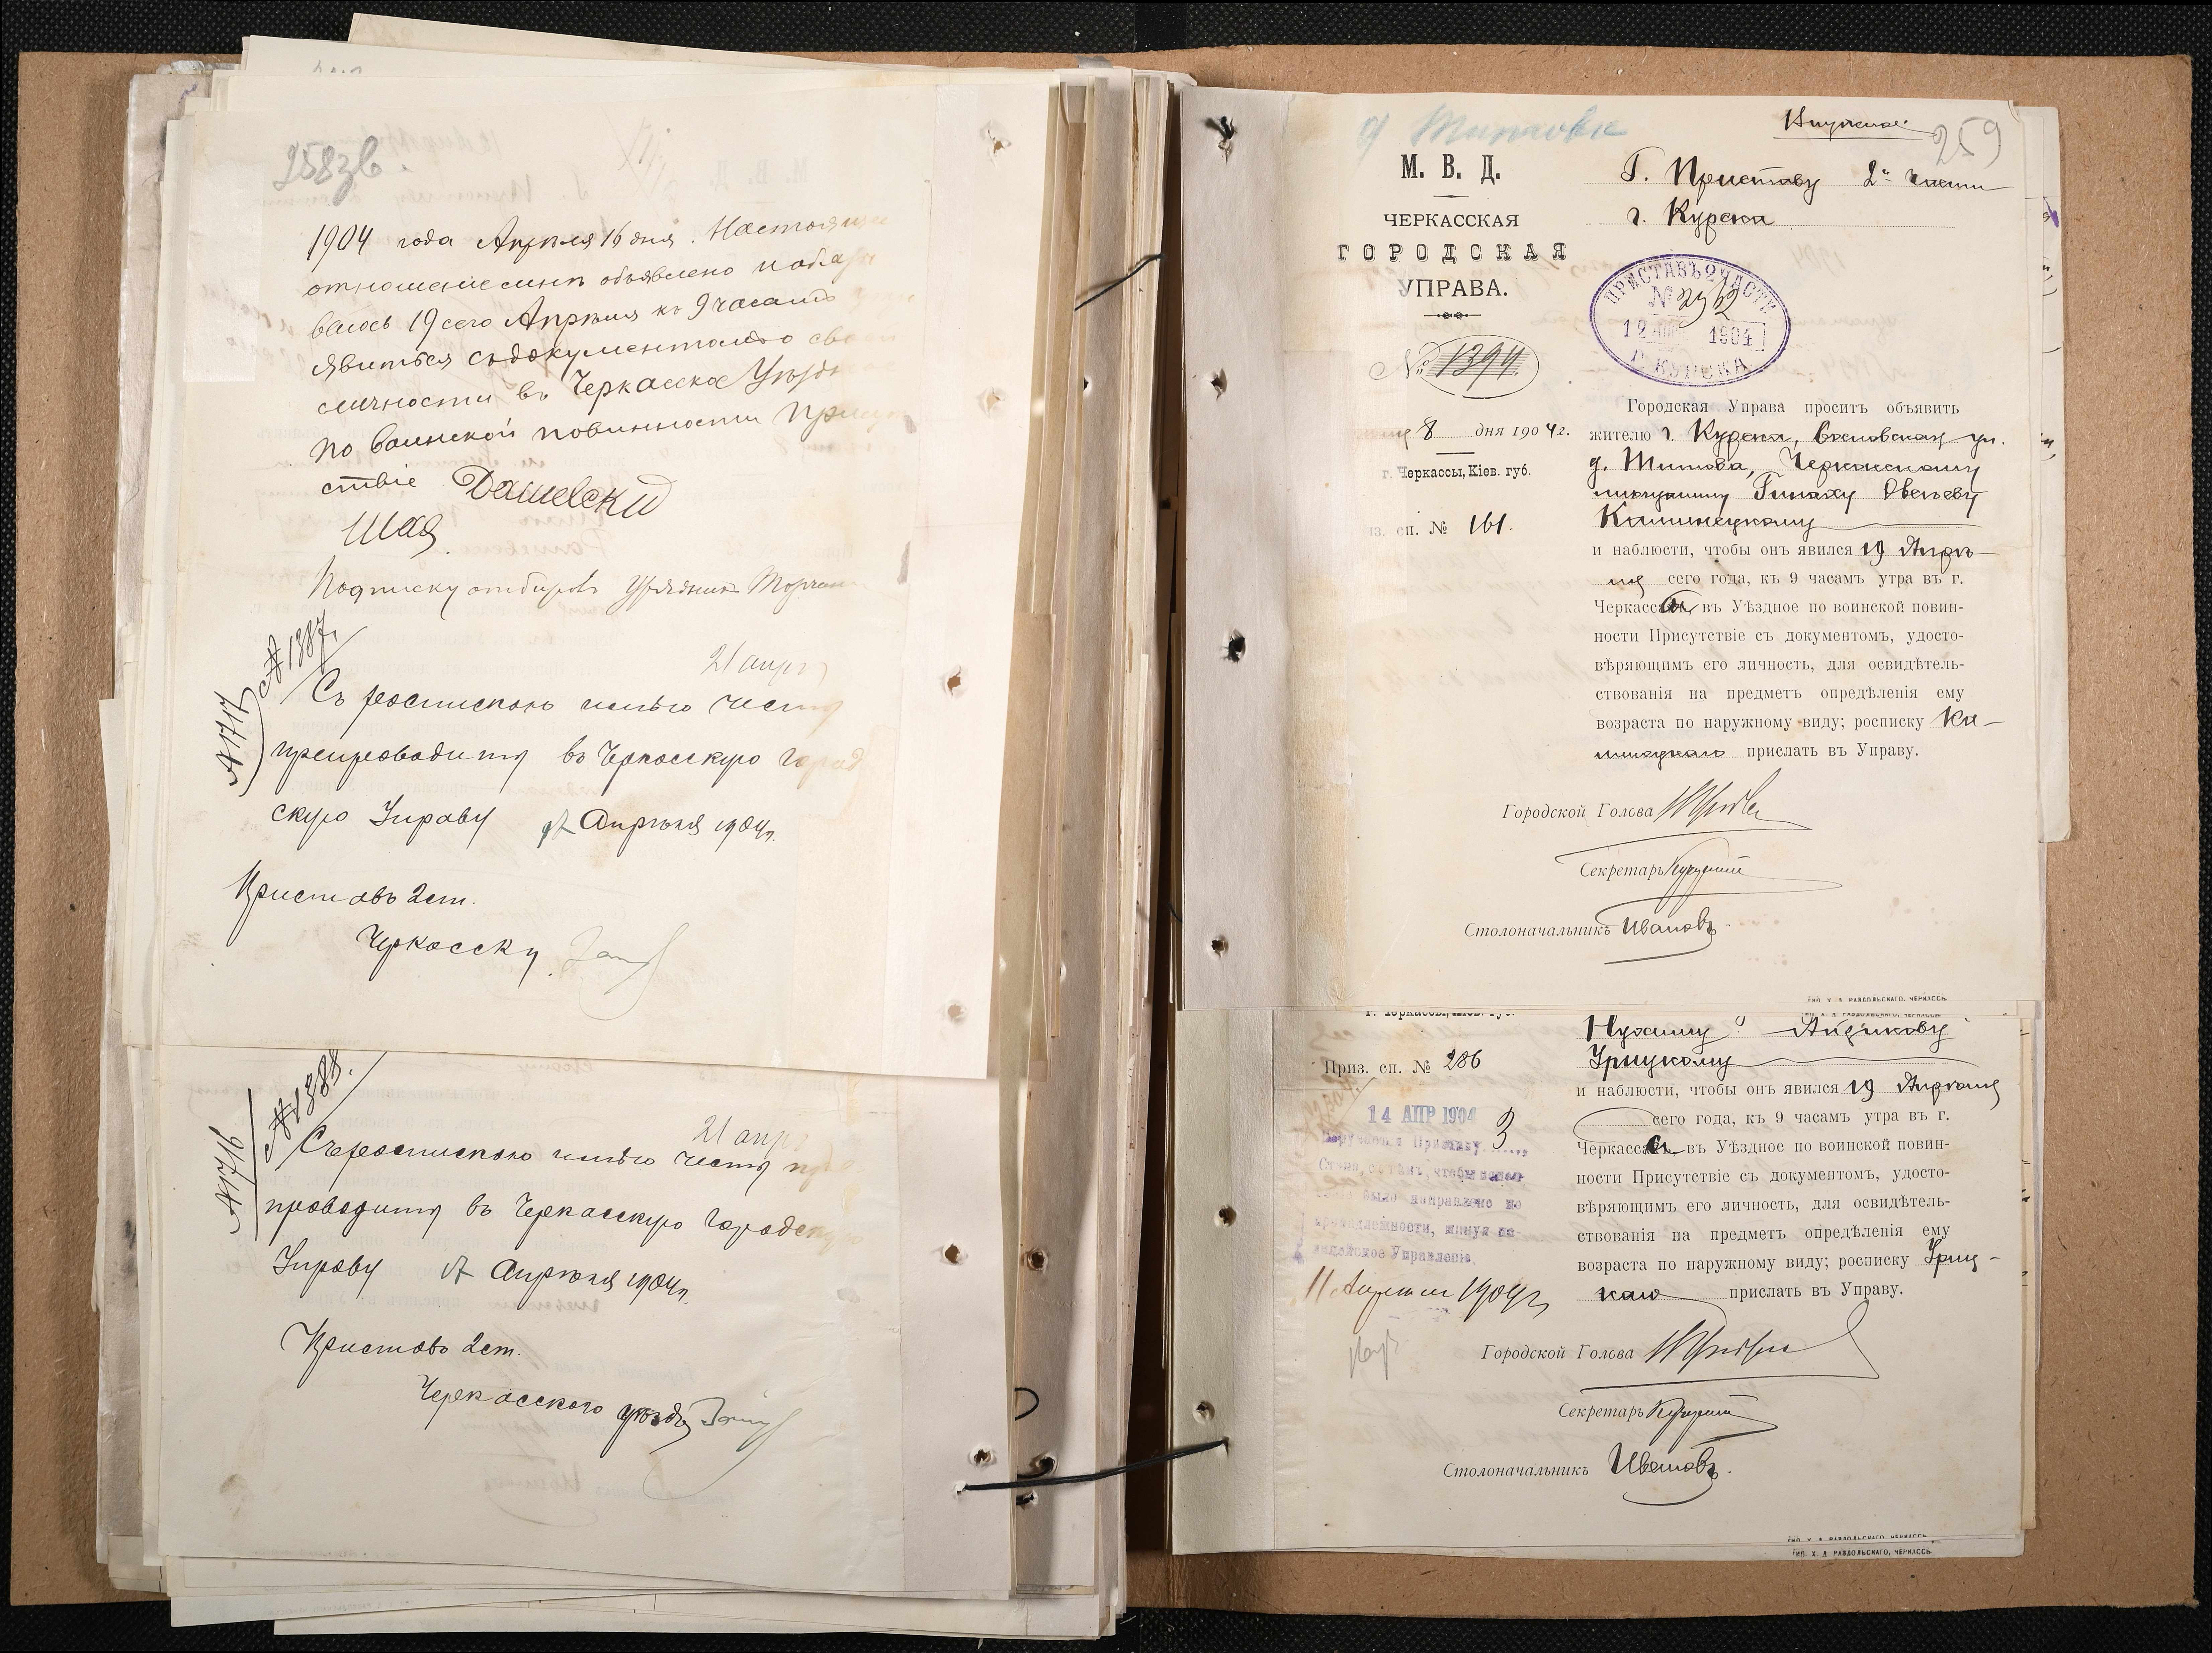 258зв.
1904 года Апреля 16 дня. Настоящее
отношение мнѣ объявлено и обяз
ваюсь 19 сего Апрѣля къ 9 часамъ
явиться съ документомъ о сво
личности въ Черкасское Уѣзд
по воинской повинности Присут
ствіе Дашевский
Шая
Подписку отбиралъ Урядникъ
№ 1887.
№ 1717
21 апр
Съ роспискою имѣю честь
препроводить въ Черкасскую Город
скую Управу Апрѣля 1904 г.
Приставъ 2 ст.
Черкасск у.
№ 1888.
№ 1716
21 апр
Съ роспискою имѣю честь пре
проводить въ Черкасскую Городскую
Управу Апрѣля 1904 г.
Приставъ 2 ст.
Черкасского уѣзда
д Титова
259
М. В. Д.
ЧЕРКАССКАЯ
ГОРОДСКАЯ
УПРАВА.
№ 1394
8 дня 1904 г.
г. Черкассы, Кіев. губ.
из. сп. № 161.
Г. Приставу 2й части
г. Курска
ПРИСТАВЪ 2 ЧАСТИ
№ 2952
12 АПР 1904
Г. КУРСКА
Городская Управа проситъ объявить
жителю г. Курска, ул.
д. Титова, Черкасскому
мѣщанину
и наблюсти, чтобы онъ явился 19 Апрѣ-
ля сего года, къ 9 часамъ утра въ г.
Черкассы, въ Уѣздное по воинской повин-
ности Присутствіе съ документомъ, удосто-
вѣряющимъ его личность, для освидѣтель-
ствованія на предметъ опредѣленія ему
возраста по наружному виду; росписку
прислать въ Управу.
Городской Голова
Секретарь
Столоначальникъ Ивановъ
ТИП. Х. Я. РАЗДОЛЬСКАГО, ЧЕРКАССЫ
г. Черкассы, Кіев. губ.
Приз. сп. № 286
14 АПР 1904
3
11 Апреля 1904 г.
Урицкому
и наблюсти, чтобы онъ явился 19 Апрѣля
сего года, къ 9 часамъ утра въ г.
Черкассы, въ Уѣздное по воинской повин-
ности Присутствіе съ документомъ, удосто-
вѣряющимъ его личность, для освидѣтель-
ствованія на предметъ опредѣленія ему
возраста по наружному виду; росписку Уриц-
каго прислать въ Управу.
Городской Голова
Секретарь
Столоначальникъ Ивановъ.
ТИП. Х. Я. РАЗДОЛЬСКАГО, ЧЕРКАССЫ